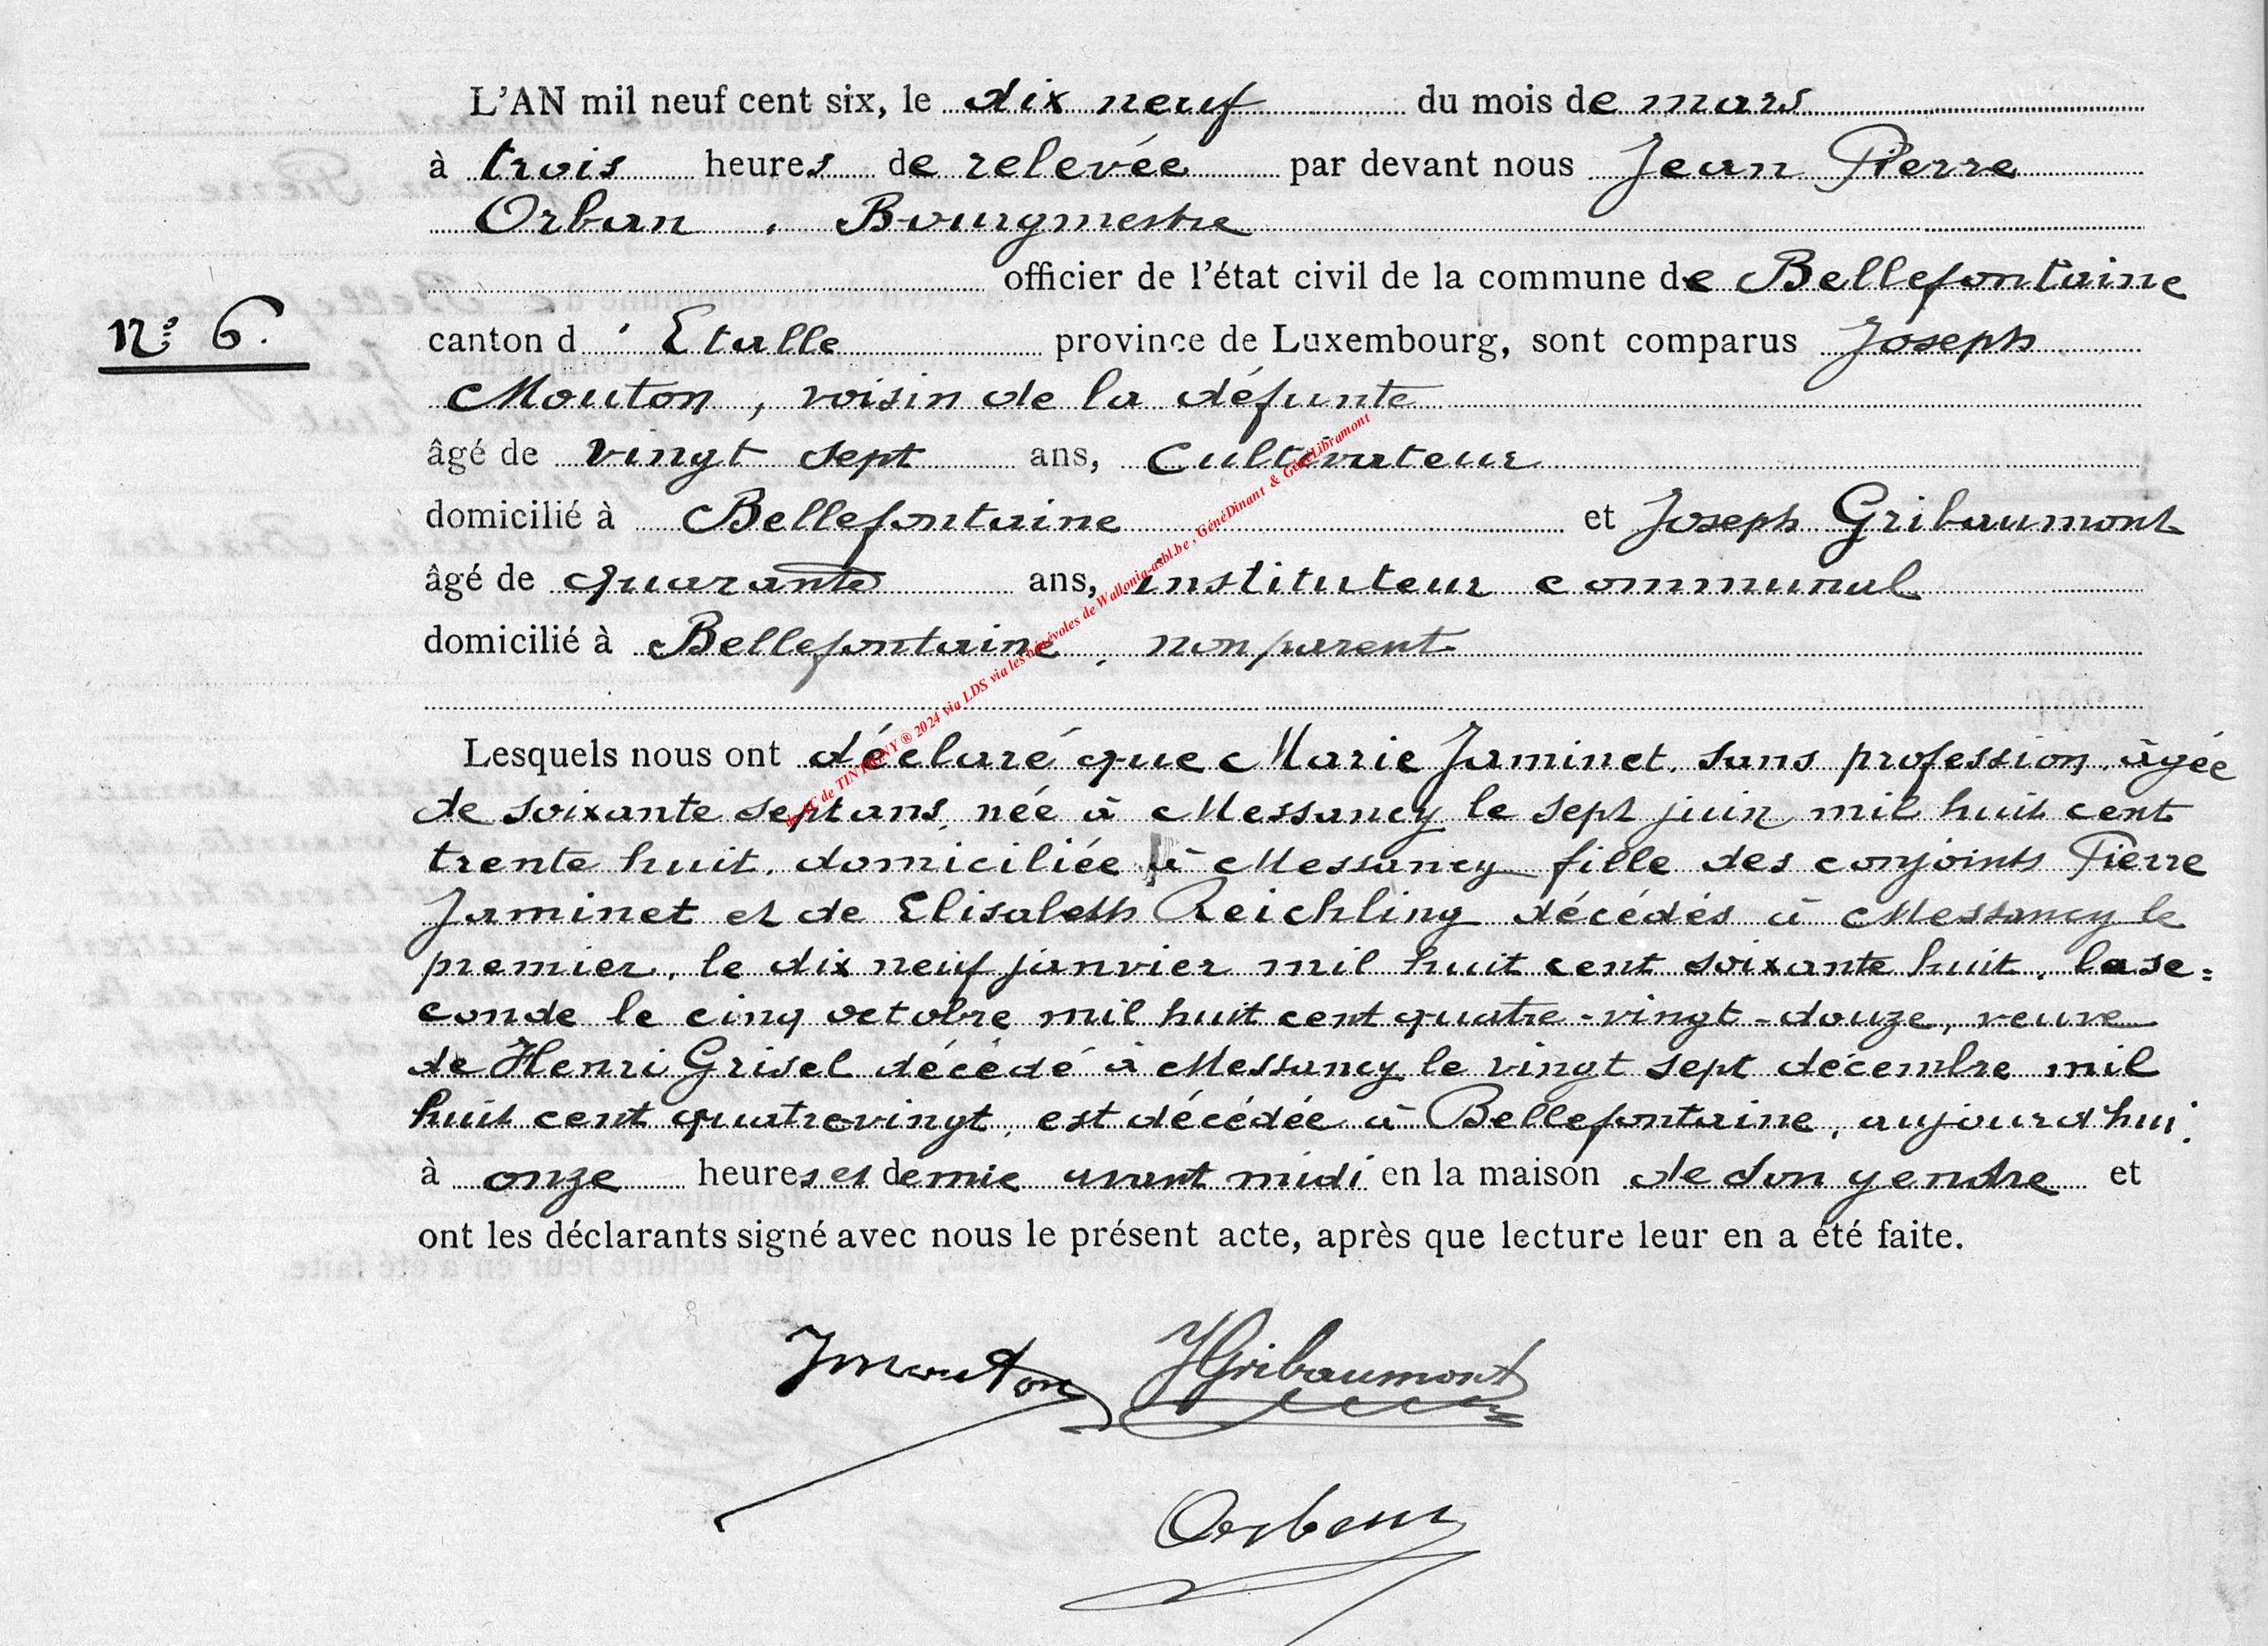 L'AN mil neuf cent six, le dix neuf du mois de mars
à trois heures de relevée par devant nous Jean Pierre
Orban, Bourgmestre
officier de l'état civil de la commune de Bellefontaine
N° 6.
canton d'Etalle province de Luxembourg, sont comparus Joseph
Mouton, voisin de la défunte
âgé de vingt sept ans, Cultivateur
domicilié à Bellefontaine et Joseph Gribaumont
âgé de quarante ans, instituteur communal
domicilié à Bellefontaine, non parent
Lesquels nous ont déclaré que Marie Jaminet, sans profession, âgée
de soixante sept ans, née à Messancy le sept juin mil huit cent
trente huit, domiciliée à Messancy fille des conjoints Pierre
Jaminet et de Elisabeth Reichling décédés à Messancy le
premier, le dix neuf janvier mil huit cent soixante huit, la se=
conde le cinq octobre mil huit cent quatre-vingt-douze, veuve
de Henri Grisel décédé à Messancy le vingt sept décembre mil
huit cent quatrevingt, est décédée à Bellefontaine, aujourd'hui
à onze heures et demie avant midi en la maison de son gendre et
ont les déclarants signé avec nous le présent acte, après que lecture leur en a été faite.
JMouton JGribaumont
Orban
de AC de TINTIGNY ® 2024 via LDS via les bénévoles de Wallonia-asbl.be , GénéDinant & GénéLibramont